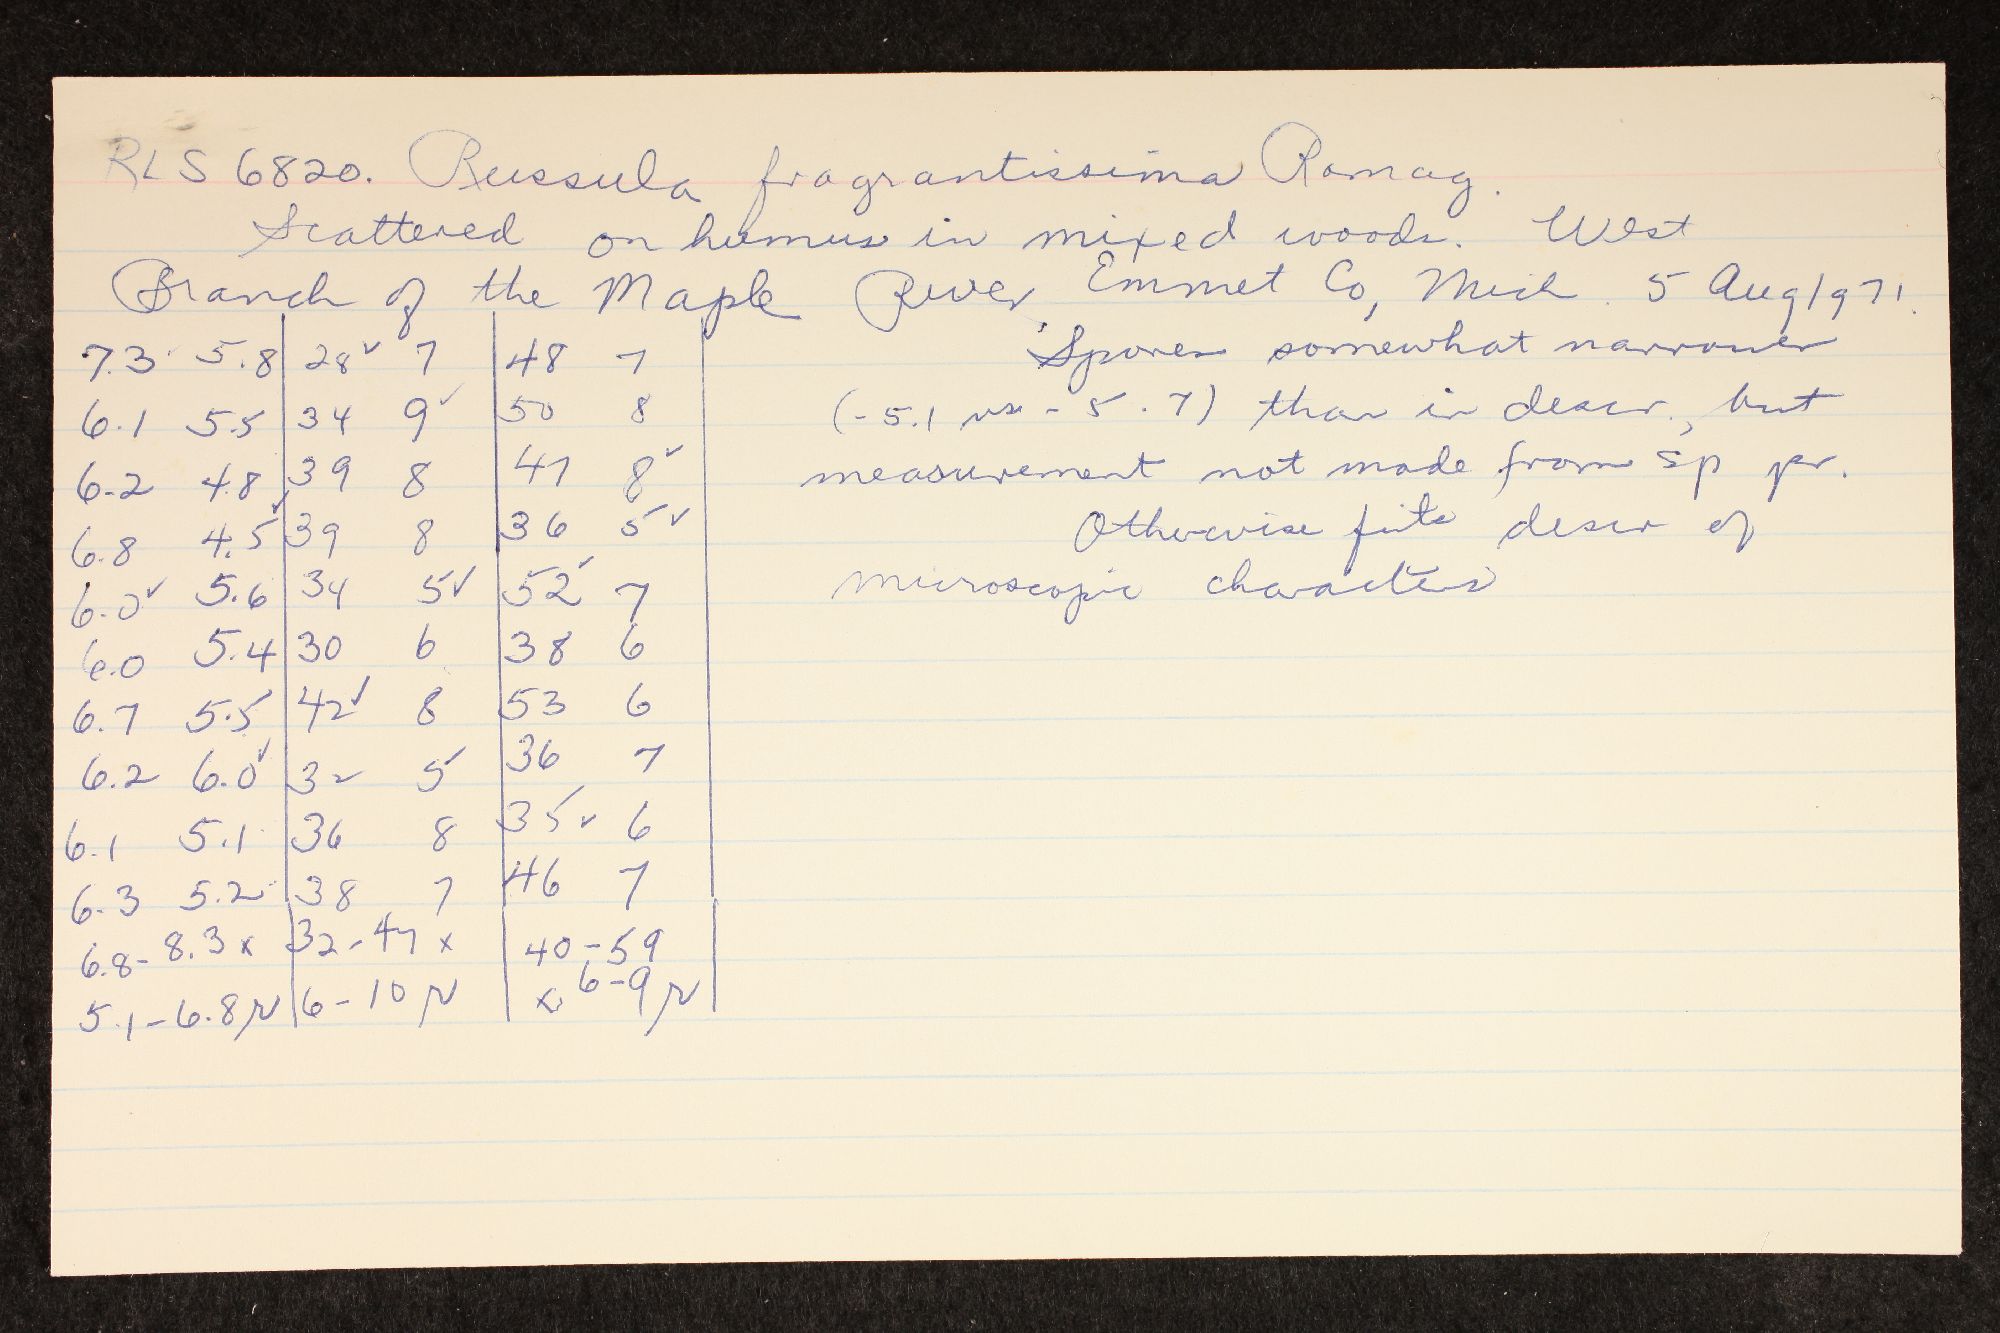 RLS 6820. Russula fragrantissima Romag.
Scattered on humus in mixed woods. West
Branch of the Maple River, Emmet Co, Mich. 5 Aug 1971.
Spores somewhat narrower
(-5.1 vs -5.7) than in descr., but
measurement not made from sp pr.
Otherwise fits descr of
microscopic characters
7.3 5.8 28✓ 7 48 7
6.1 5.5 34 9✓ 50 8
6.2 4.8 39 8 47 8✓
6.8 4.5✓ 39 8 36 5✓
6.0✓ 5.6 34 5✓ 52✓ 7
6.0 5.4 30 6 38 6
6.7 5.5 42✓ 8 53 6
6.2 6.0✓ 32 5 36 7
6.1 5.1 36 8 35✓ 6
6.3 5.2 38 7 46 7
6.8-8.3 x 32-47 x 40-59
5.1-6.8 μ 6-10 μ x 6-9 μ